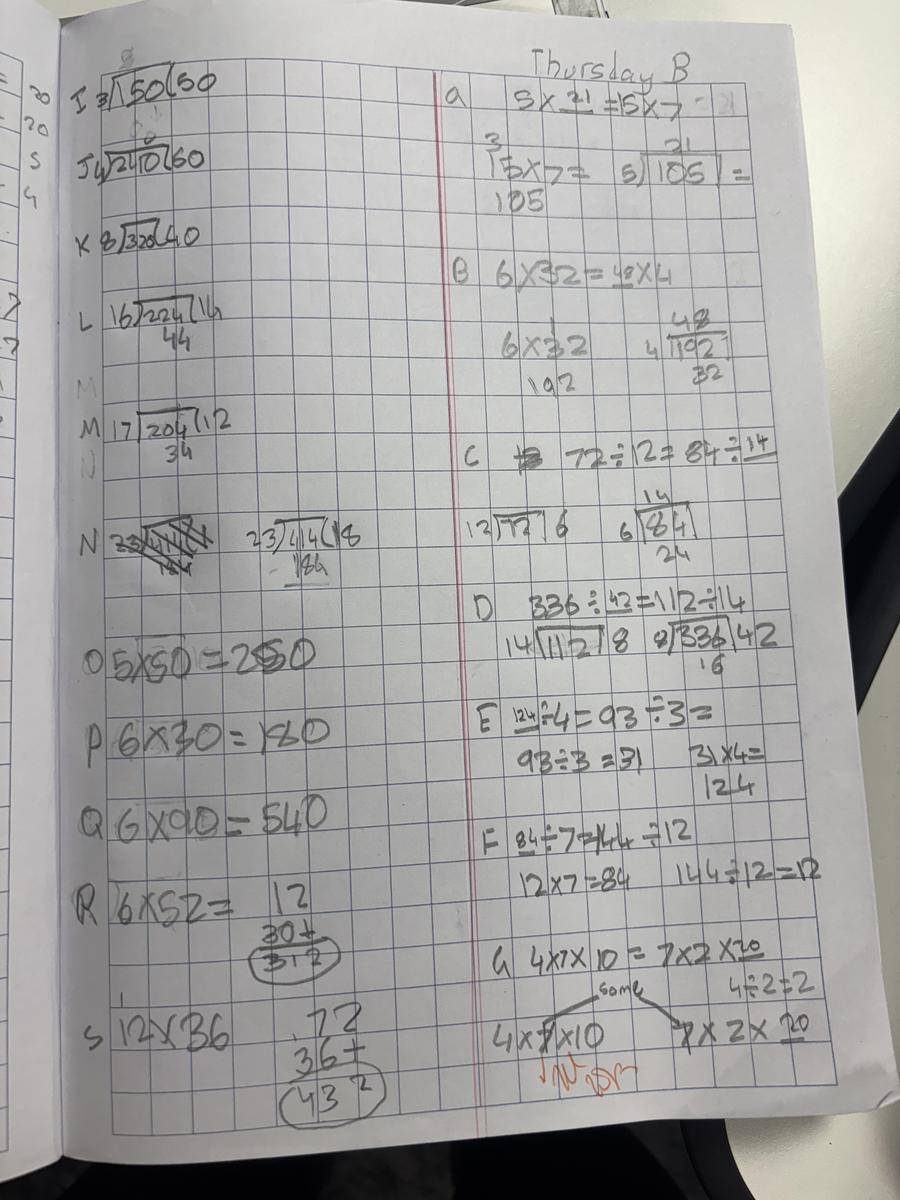 20
20
5
4
I 3)150(50
J 4)240(60
K 8)320(40
L 16)224(14
44
M
M 17)204(12
34
N
N 23)414(18
184
O 5x50=250
P 6x30=180
Q 6x90=540
R 6x52= 12
30+
312
1
S 12x36 72
36+
432
Thursday B
a 5x21=15x7
3 21
15x7= 5)105=
105
B 6x32=48x4
1 48
6x32 4)192
192 32
C 72÷12=84÷14
14
12)72 6 6)84
24
D 336÷42=112÷14
14)112 8 8)336 42
16
E 124÷4=93÷3=
93÷3=31 31x4=
124
F 84÷7=144÷12
12x7=84 144÷12=12
G 4x7x10=7x2x20
same 4÷2=2
4x7x10 7x2x20